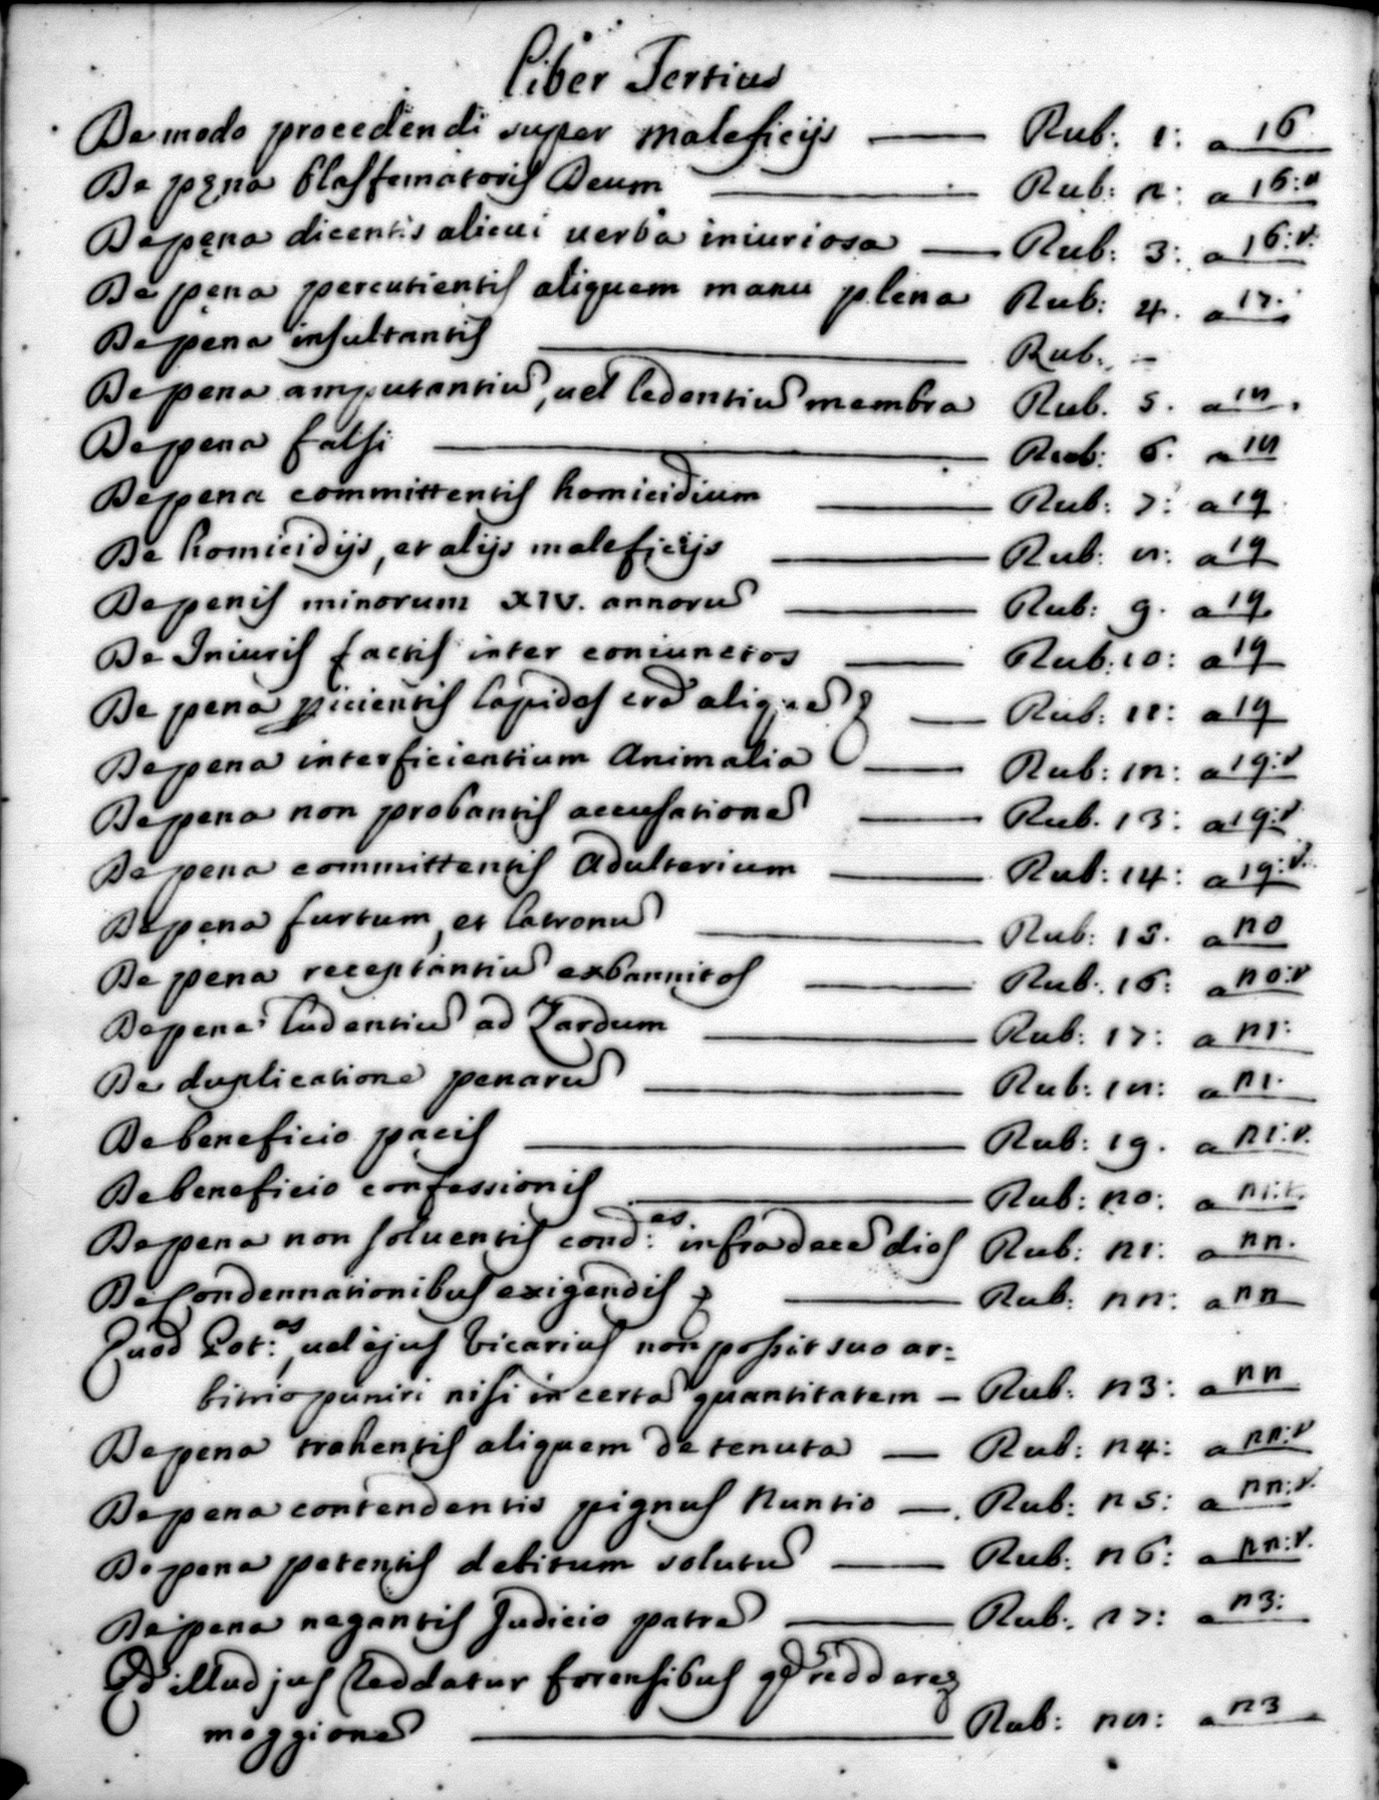 Liber Tertius
De modo procedendi super maleficijs — Rub: 1: a 16
De pęna blasfematoris Deum — Rub: 2: a 16:v
De pęna dicentis alicui uerba iniuriosa — Rub: 3: a 16:v.
De pęna percutientis aliquem manu plena Rub: 4. a 17.
De pena insultantis — Rub: –
De pena amputantiũ, uel ledentiũ membra Rub. 5. a 18.
De pena falsi — Rub: 6. a 18
De pena committentis homicidium — Rub: 7: a 19
De homicidijs, et alijs maleficijs — Rub: 8: a 19
De penis minorum XIV. annorũ — Rub: 9. a 19
De Iniuris factis inter coniunctos — Rub: 10: a 19
De pena picientis lapides aliquẽ — Rub: 11: a 19
De pena interficientium Animalia — Rub: 12: a 19:v
De pena non probantis accusationẽ — Rub. 13: a 19:v
De pena committentis Adulterium — Rub: 14: a 19:v.
De pęna furtum, et latronũ — Rub: 15. a 20
De pena receptantiũ exbannitos — Rub: 16: a 20:v
De pena ludentiũ ad Zardum — Rub: 17: a 21:
De duplicatione penarũ — Rub: 18: a 21.
De beneficio pacis — Rub: 19. a 21:v.
De beneficio confessionis — Rub: 20: a 21:v.
De pena non soluentis cond:es infra decẽ dies Rub: 21: a 22.
De Condennationibus exigendis — Rub: 22: a 22
Quod Pot:as, uel ejus Vicarius non possit suo ar=
bitrio puniri nisi in certã quantitatem – Rub: 23: a 22
De pena trahentis aliquem de tenuta — Rub: 24: a 22:v
De pena contendentis pignus Nuntio —. Rub: 25: a 22:v.
De pena petentis debitum solutũ — Rub: 26: a 22:v.
De pena negantis Judicio patrẽ — Rub: 27: a 23:
illud jus reddatur forensibus
maggionẽ — Rub: 28: a 23